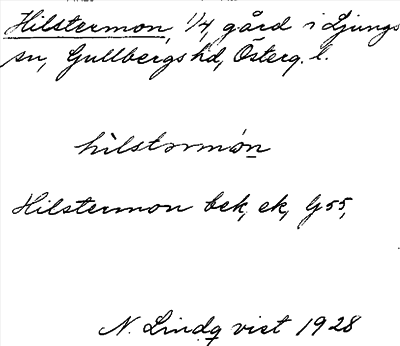 Hilstermon, 1/4, gård i Ljungs
sn, Gullbergs hd, Österg. l.
hilstərmón
Hilstermon bek, ek, G 55,
N. Lindqvist 1928